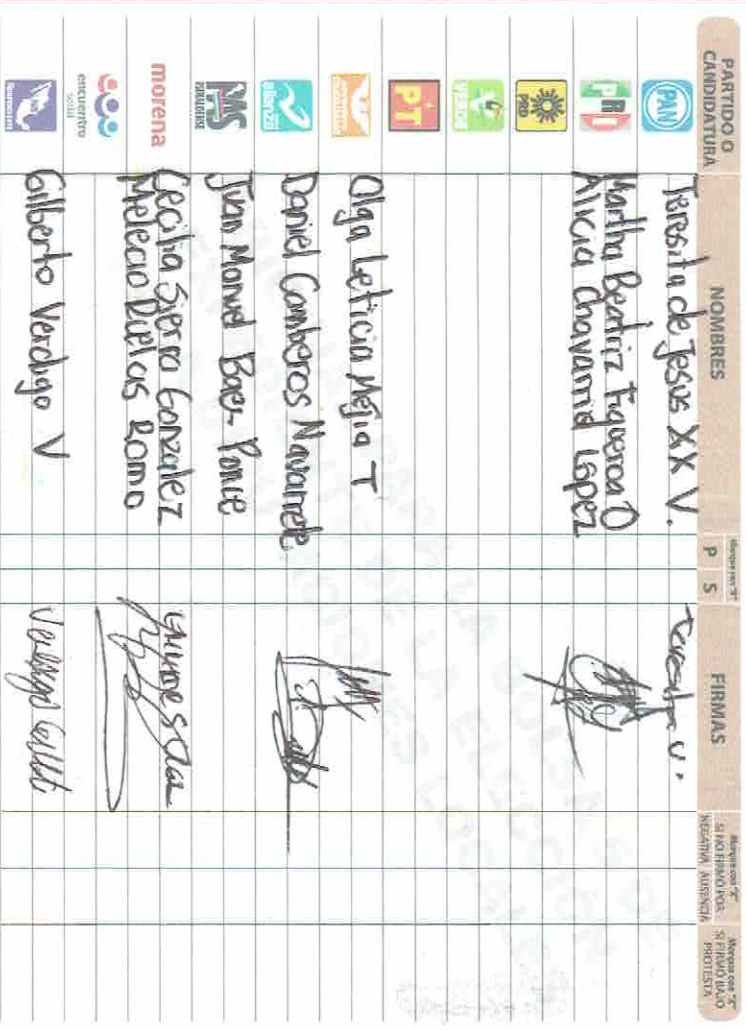 PARTIDO O CANDIDATURA
NOMBRES
Marque con "X"
P S
FIRMAS
Marque con "X" SI NO FIRMÓ POR:
NEGATIVA AUSENCIA
Marque con "X" SI FIRMÓ BAJO PROTESTA
PAN
Teresita de Jesus XX V.
PRI
Martha Beatriz Figueroa O
Alicia Chavarria López
PRD
VERDE
PT
Olga Leticia Mejia T
alianza
Daniel Camberos Navarrete
MS
Juan Manuel Baez Ponce
morena
Cecilia Sierra Gonzalez
Melecio Ruelas Romo
encuentro
social
Gilberto Verdugo V
PARA LA BOLSA
DE LA ELECCIÓN
LOCALES